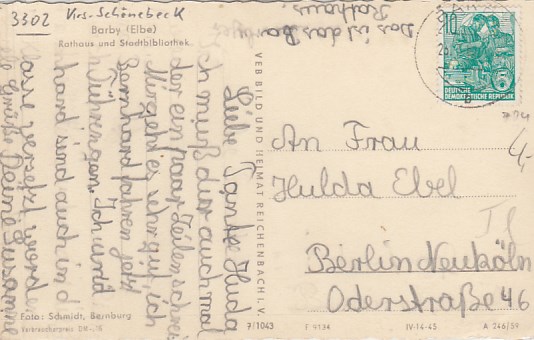 3302 Krs. Schönebeck
Barby (Elbe)
Rathaus und Stadtbibliothek
Das ist das Bar
Rathaus.
Liebe Tante Hulda
Ich muß dir auch mal
der ein paar Zeilen schrei
Mir geht es sehr gut, ich
Bernhard fahren jetzt
Thüringen. Ich und
hard sind auch in d
versetzt worden
Grüße Deine Susanne
VEB BILD UND HEIMAT REICHENBACH I. V.
10
5
DEUTSCHE
DEMOKRATISCHE REPUBLIK
An Frau
Hulda Ebel
Berlin Neuköln
Oderstraße 46
Foto: Schmidt, Bernburg
Verbraucherpreis DM -,15
7/1043 F 9134 IV-14-45 A 246/59